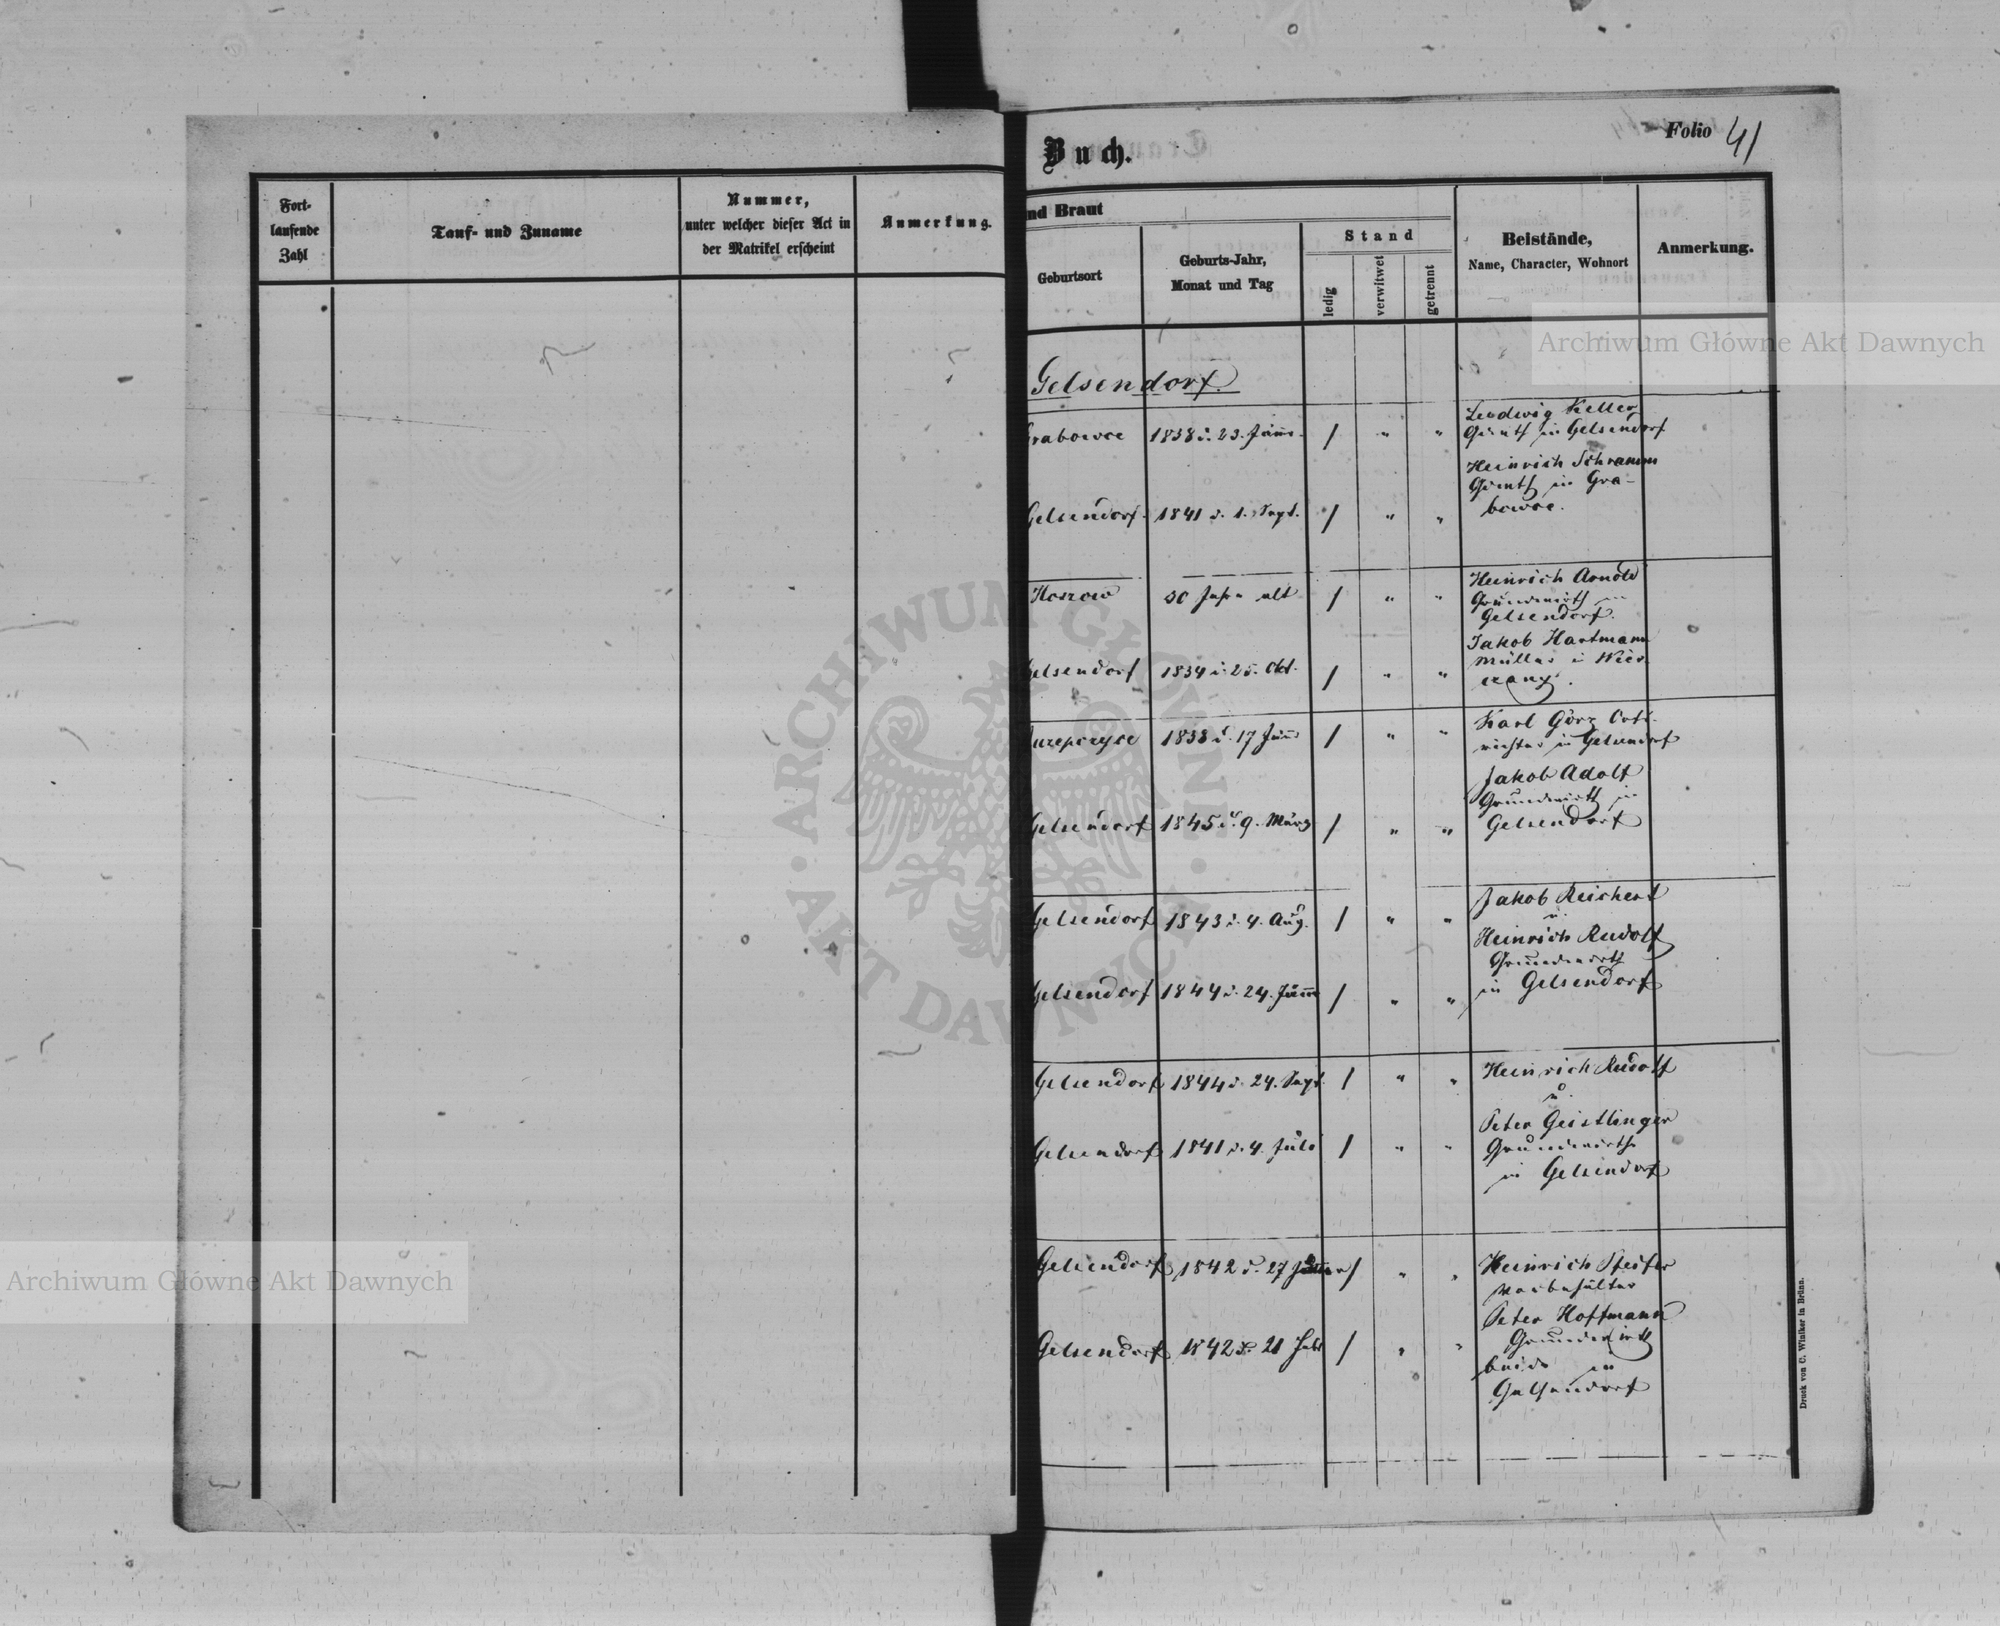 Fort-
laufende
Zahl
Tauf- und Zuname
Nummer,
unter welcher dieser Act in
der Matrikel erscheint
Anmerkung.
Buch.
Folio 41
nd Braut
Geburtsort
Geburts-Jahr,
Monat und Tag
Stand
ledig
verwitwet
getrennt
Beistände,
Name, Character, Wohnort
Anmerkung.
Gelsendorf.
Grabowce 1838 d. 23. / " "
Ludwig Keller
in Gelsendorf
Heinrich Schramm
in Gra-
bowce.
Gelsendorf. 1841 d. 1. Sept. / " "
30 Jahr alt / " "
Heinrich Arnold
Grundwirth in
Gelsendorf.
Jakob Hartmann
Müller in Wier
czany.
Gelsendorf 1834 d. 25. Okt. / " "
1838 d. 17 / " "
Karl Görz Orts-
richter in Gelsendorf
Jakob Adolf
Grundwirth in
Gelsendorf
Gelsendorf 1845 d. 9. März / " "
Gelsendorf 1843 d. 4. Aug. / " "
Jakob Reichert
u.
Heinrich Rudolf
Grundwirth
in Gelsendorf
Gelsendorf 1844 d. 24. / " "
Gelsendorf 1844 d. 24. Sept. / " "
Heinrich Rudolf
u.
Peter Geistlinger
Grundwirthe
in Gelsendorf
Gelsendorf 1841 d. 4. Juli / " "
Gelsendorf 1842 d. 27 / " "
Heinrich Pfeifer
Peter Hoffmann
Grundwirth
beide in
Gelsendorf
Gelsendorf 1842 d. 21 Feb / " "
Druck von C. Winiker in Brünn.
Archiwum Główne Akt Dawnych
Archiwum Główne Akt Dawnych
ARCHIWUM GŁÓWNE · AKT DAWNYCH ·